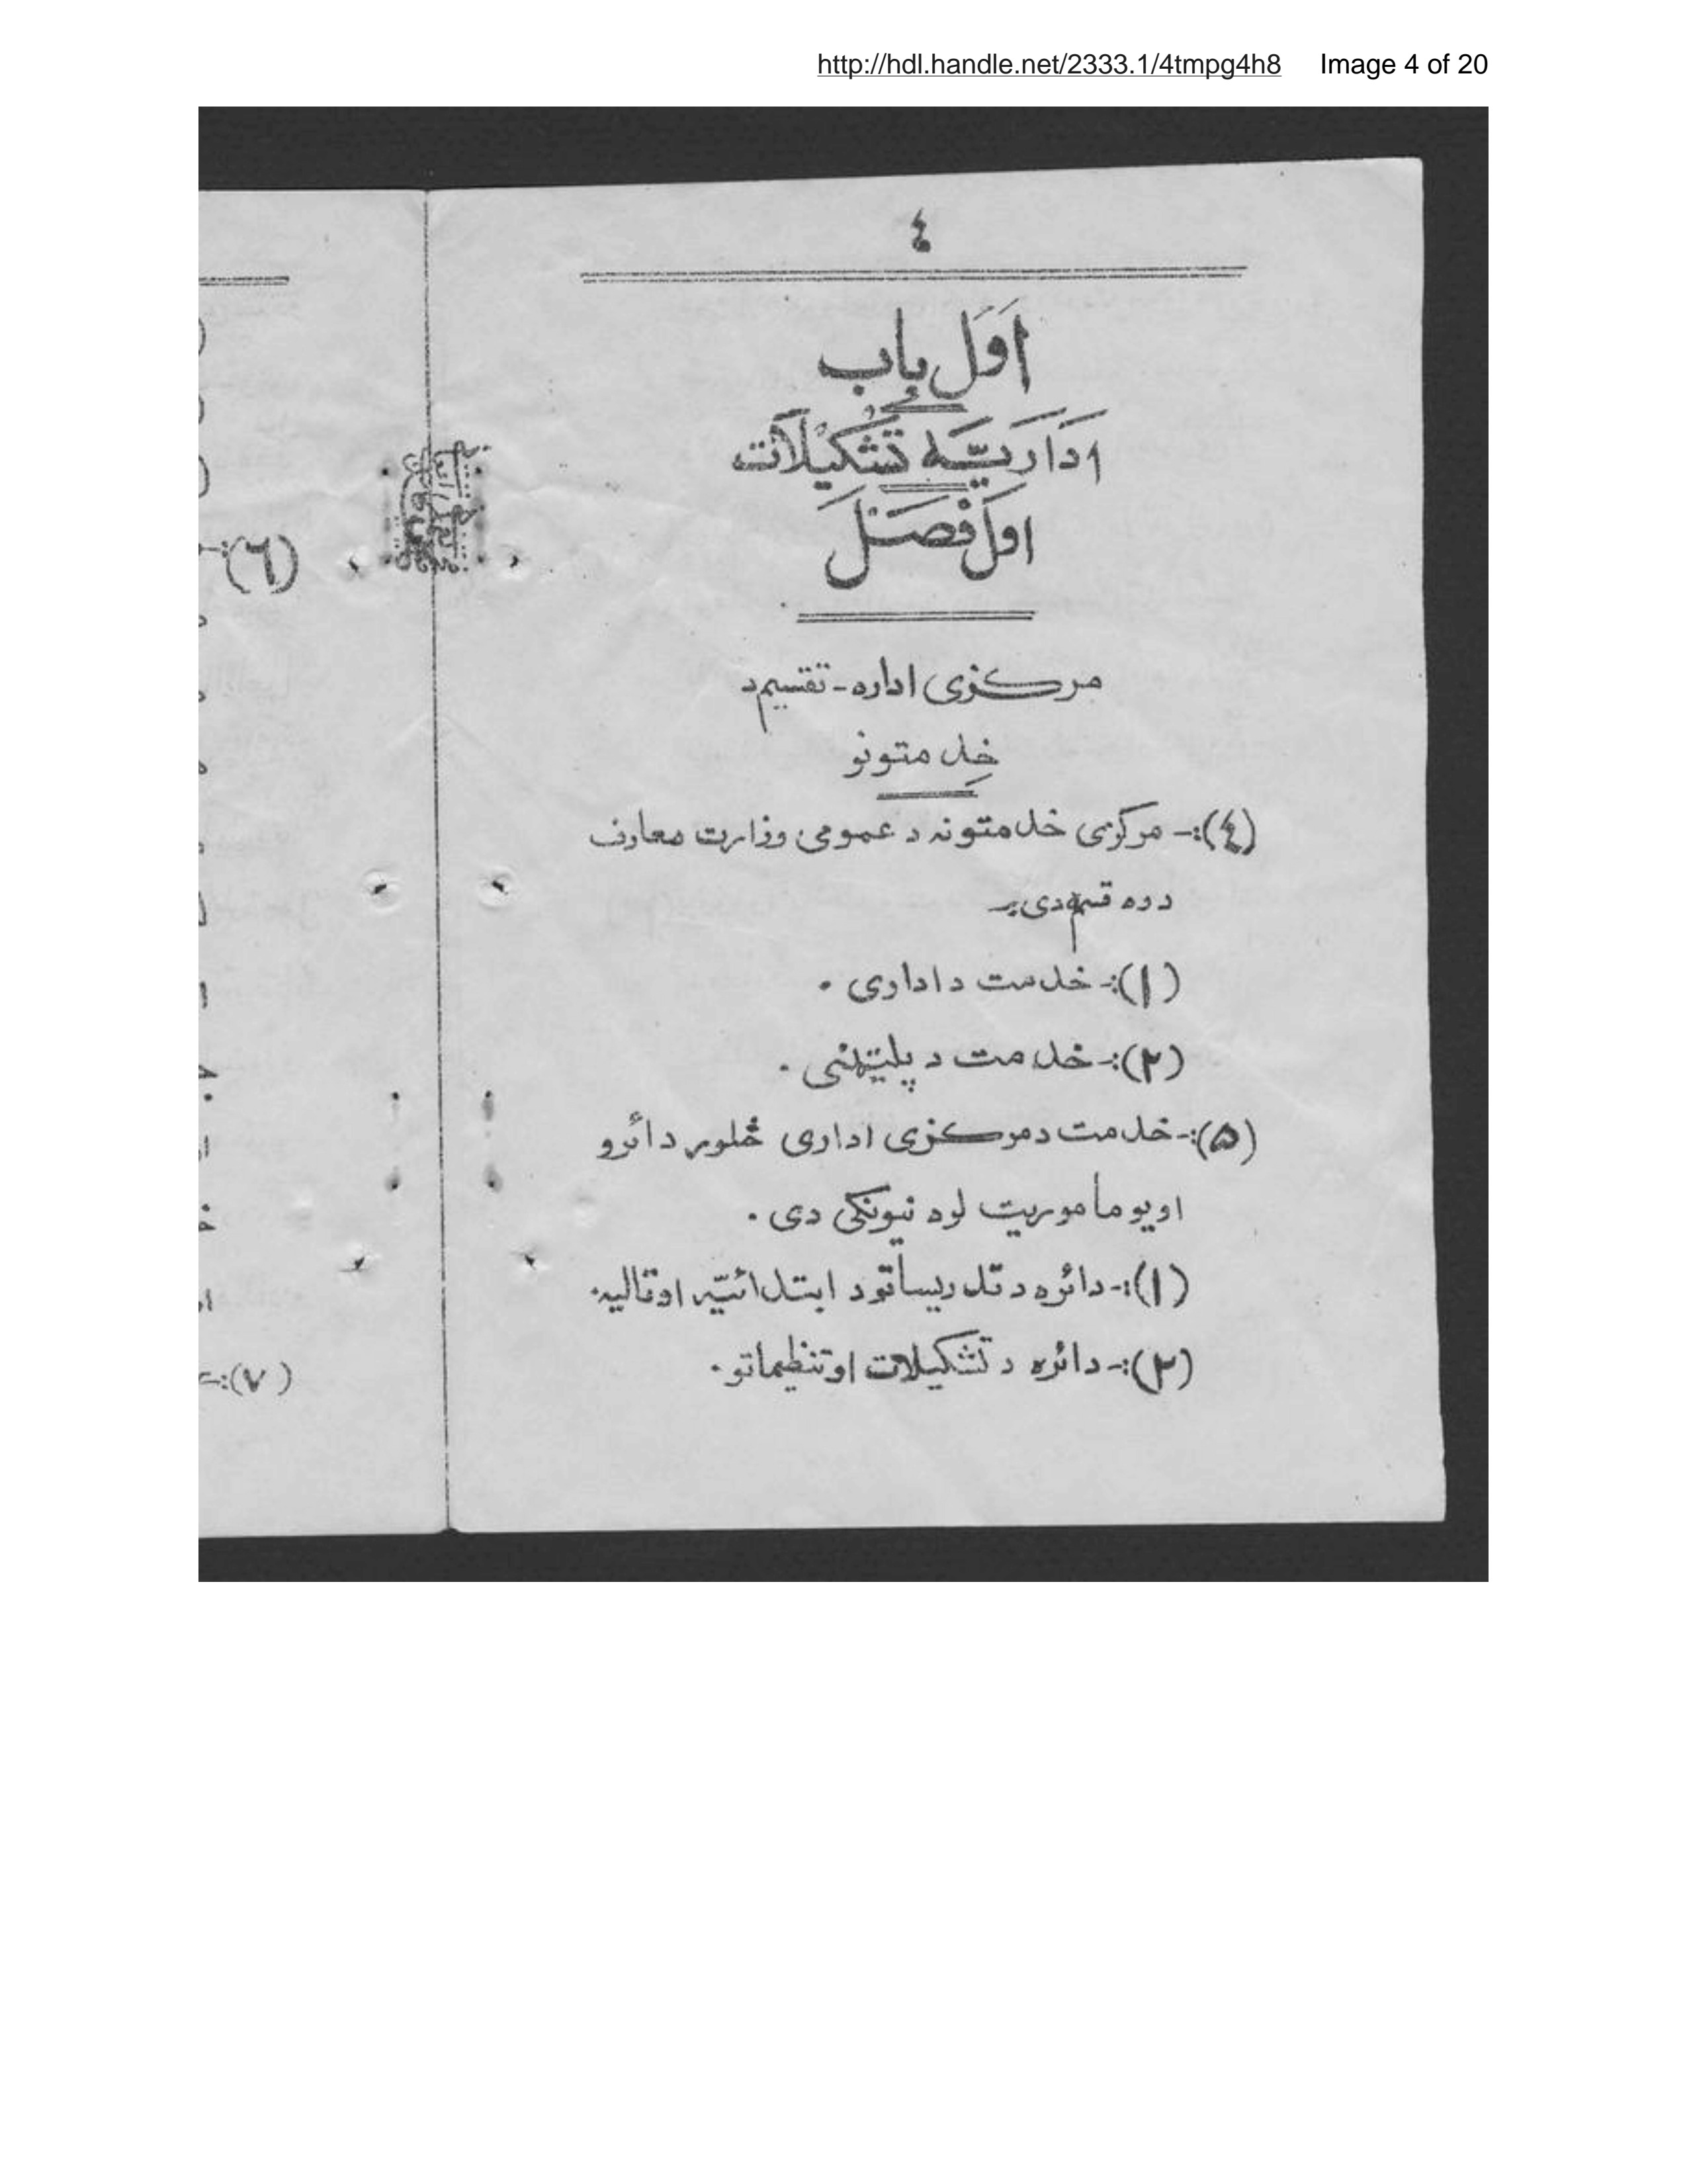 http://hdl.handle.net/2333.1/4tmpg4h8 Image 4 of 20
٤
اَوَل باب
اداریّه تشکیلات
اول فصل
مرکزی اداره - تقسیم د
خدمتونو
(٤):- مرکزی خدمتونه د عمومی وزارت معارف
دوه قسم دی :-
(١):- خدمت د اداری .
(٢):- خدمت د پلیټهنی .
(۵):- خدمت د مرکزی اداری څلور دائرو
او یو مأموریت لوه نیونکی دی .
(١):- دائره د تدریساتو د ابتدائیّه او تالیه .
(٢):- دائره د تشکیلات او تنظیماتو .
(٦):-
(٧):-